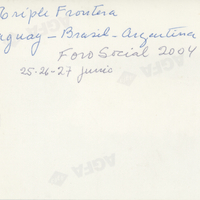 Triple Frontera
aguay - Brasil - Argentina
Foro Social 2004
25-26-27 junio
AGFA
AGFA
AGFA